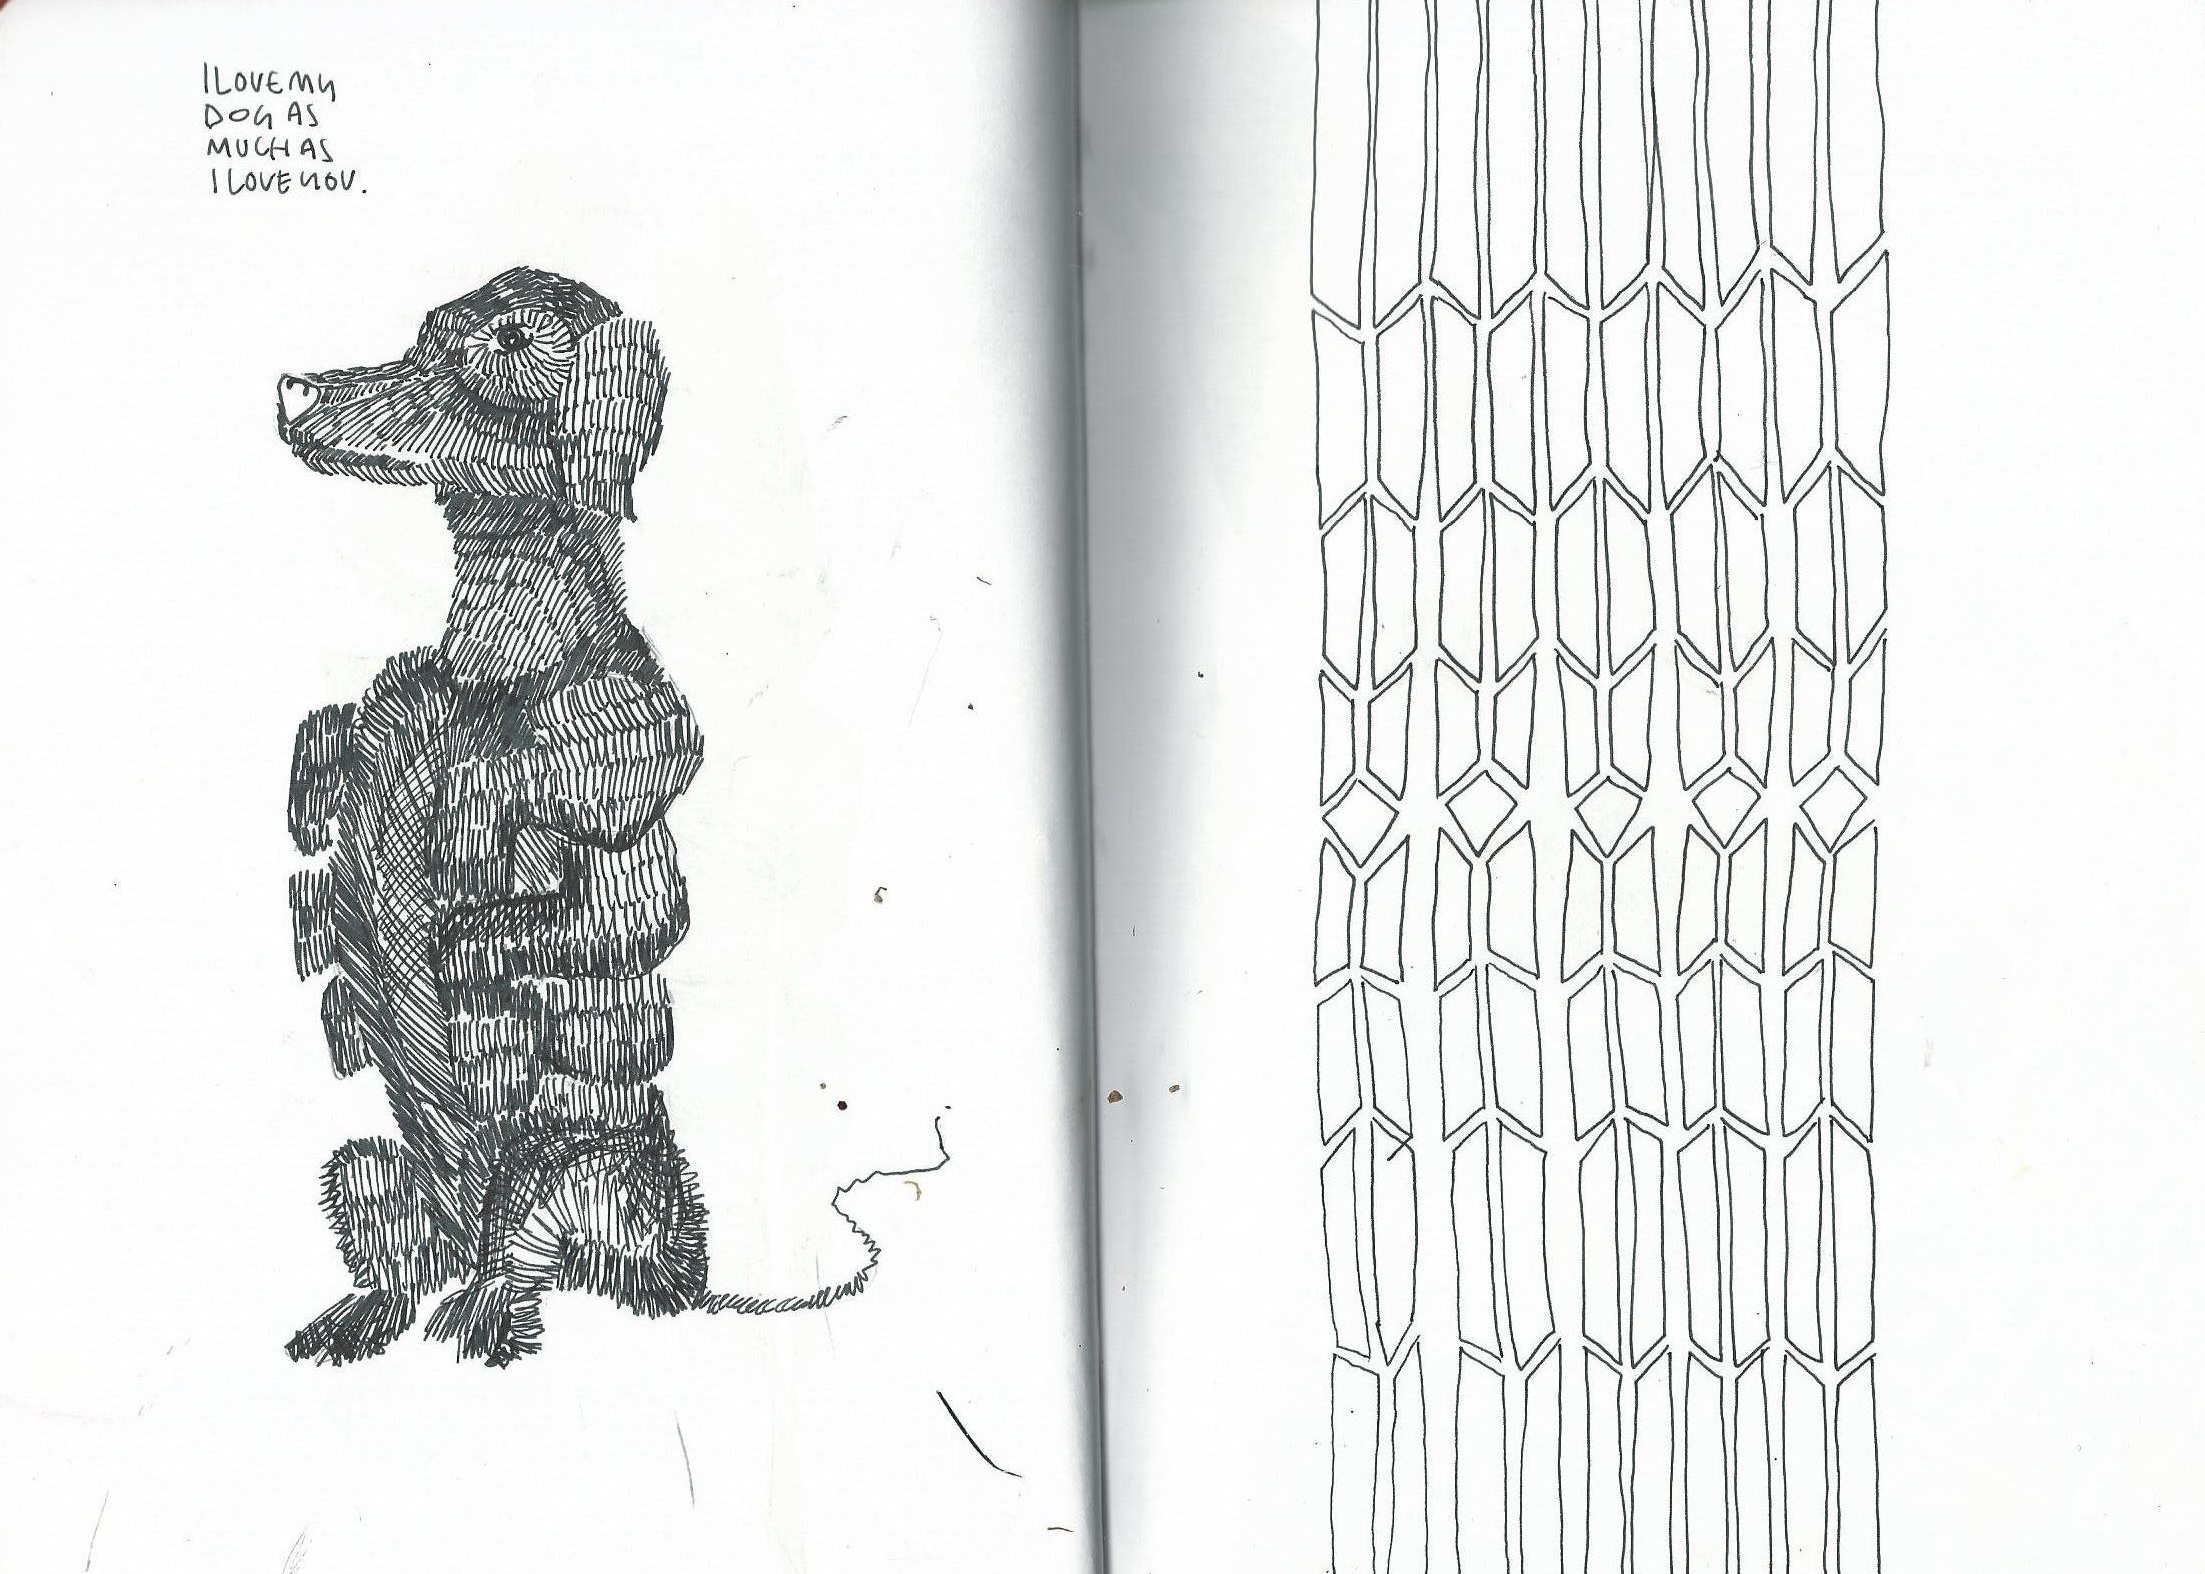 I LOVE MY
DOG AS
MUCH AS
I LOVE YOU.